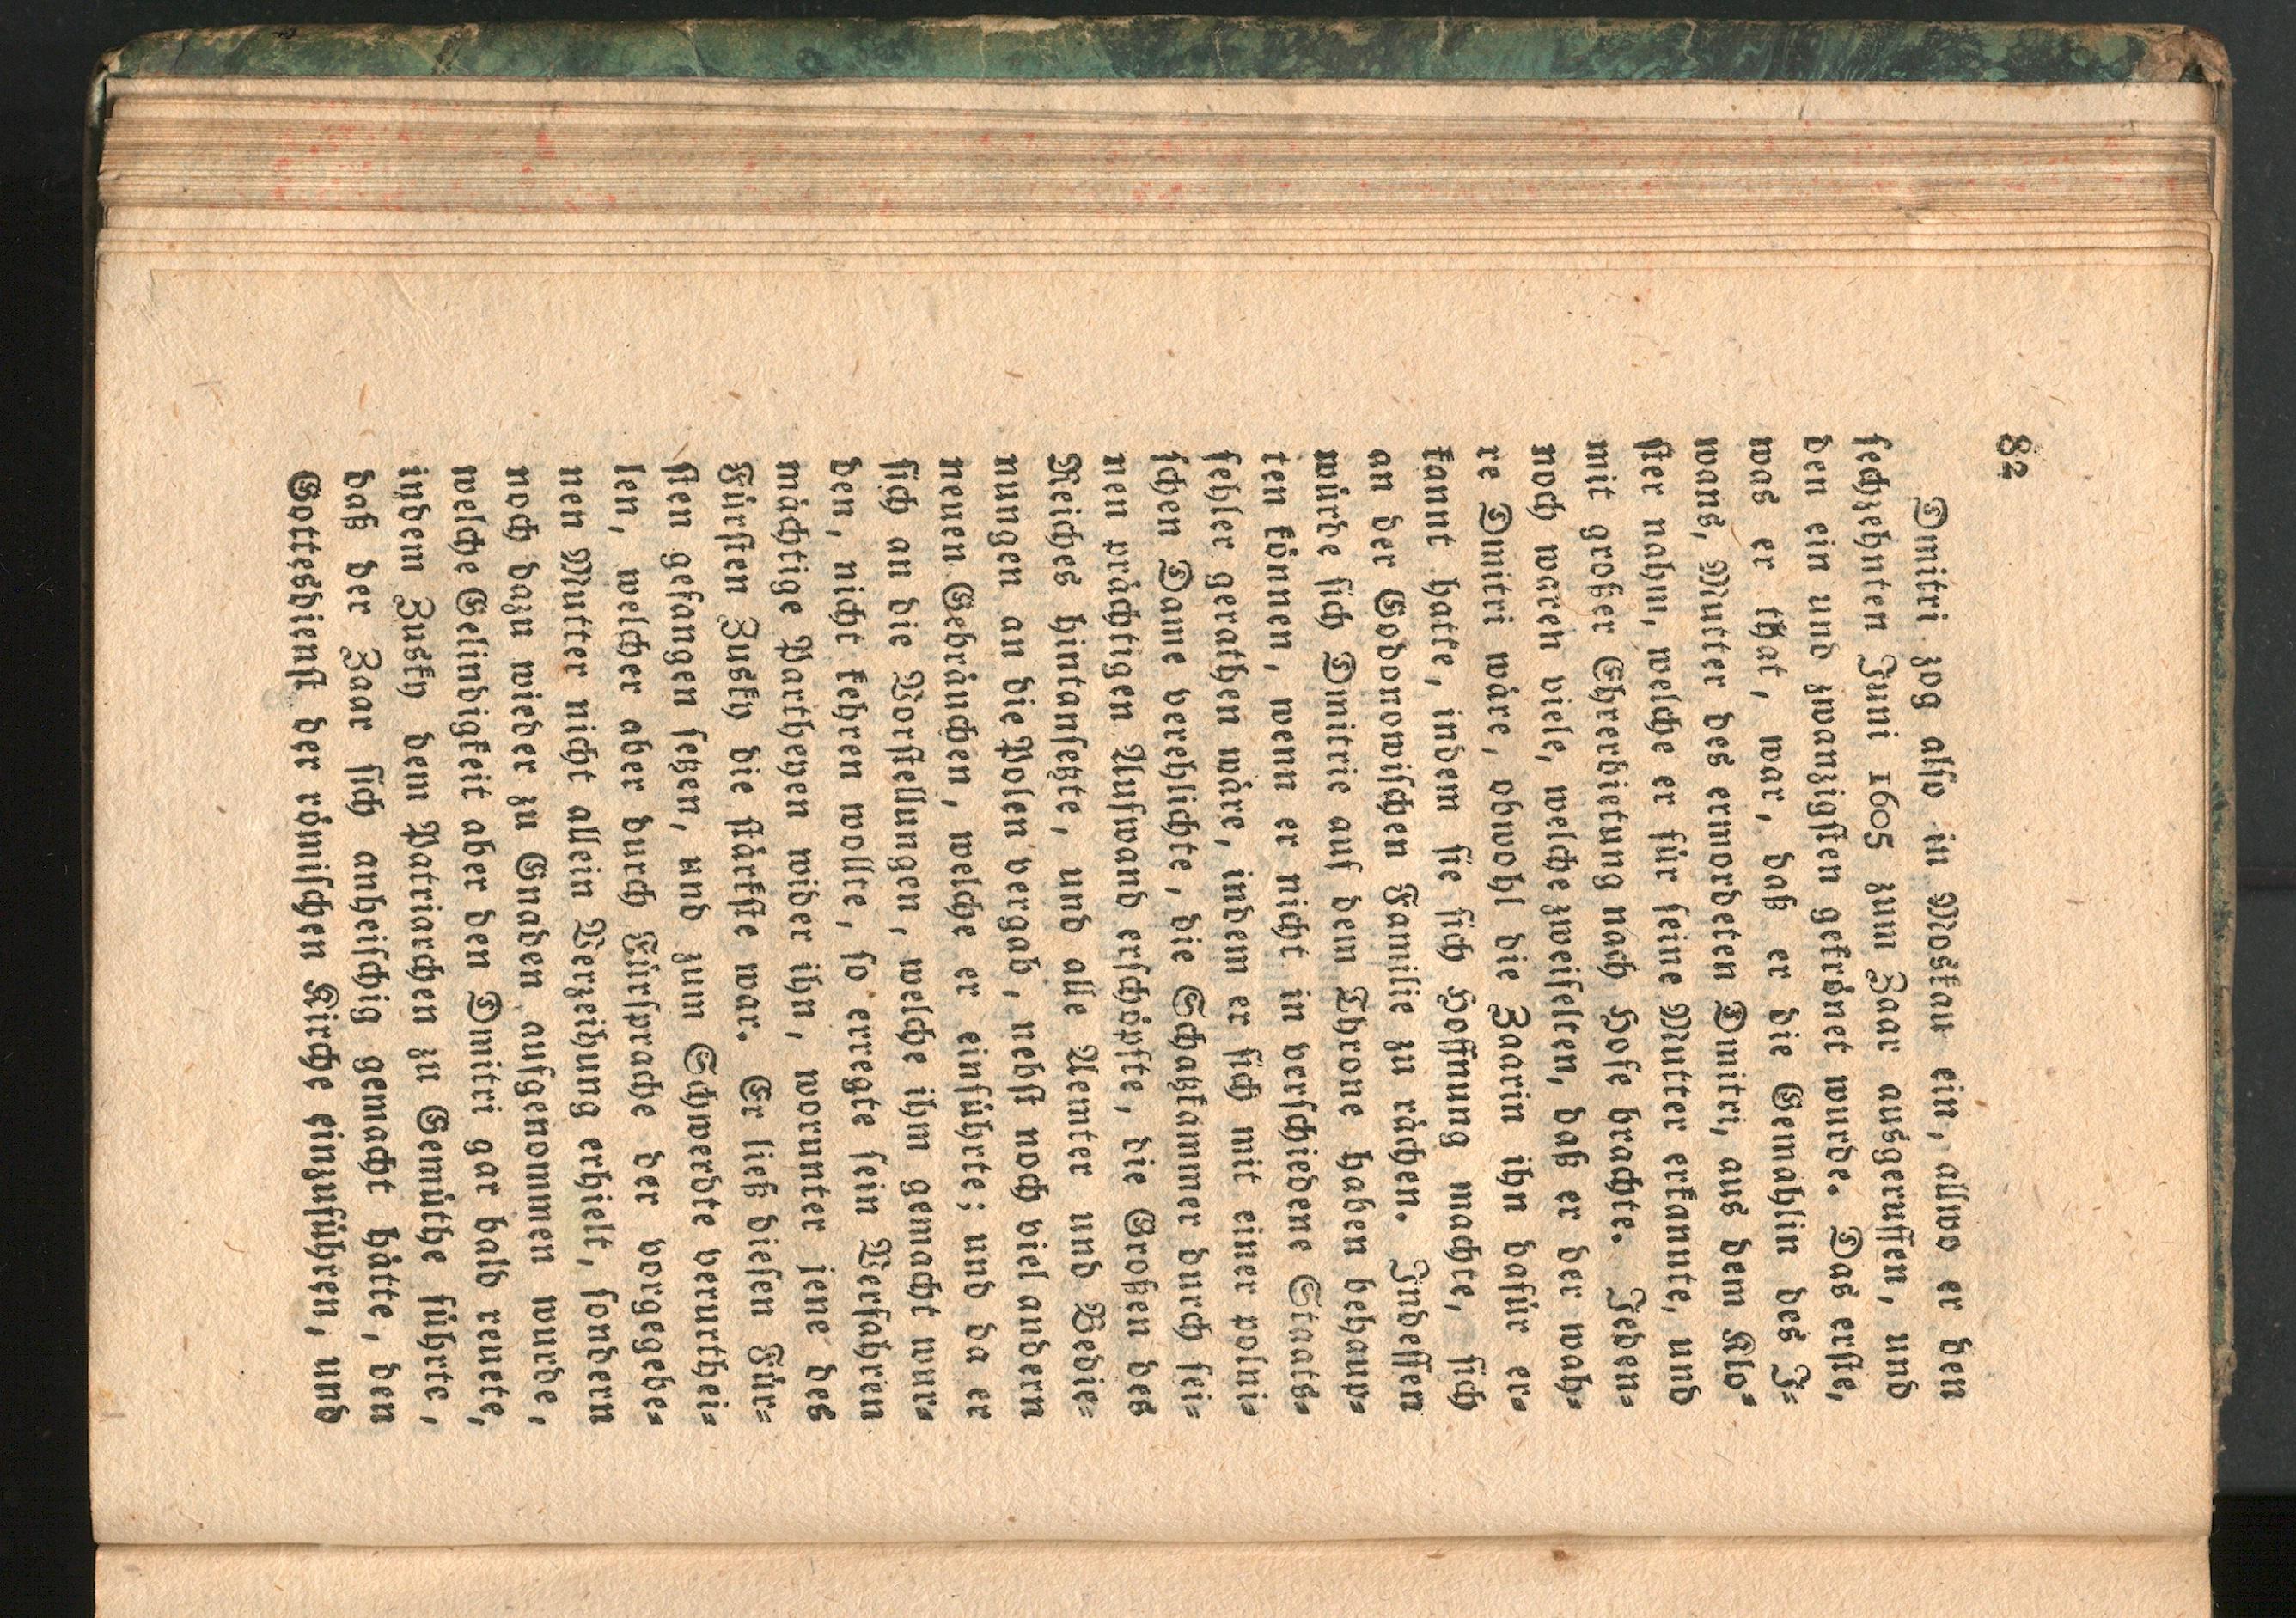 82
Dmitri zog also in Moskau ein, allwo er den
sechzehnten Juni 1605 zum Zaar ausgeruffen, und
den ein und zwanzigsten gekrönet wurde. Das erste,
was er that, war, daß er die Gemahlin des J-
wans, Mutter des ermordeten Dmitri, aus dem Klo-
ster nahm, welche er für seine Mutter erkannte, und
mit großer Ehrerbietung nach Hofe brachte. Jeden-
noch waren viele, welche zweifelten, daß er der wah-
re Dmitri wäre, obwohl die Zaarin ihn dafür er-
kannt hatte, indem sie sich Hoffnung machte, sich
an der Godonowischen Familie zu rächen. Indessen
würde sich Dmitrie auf dem Throne haben behaup-
ten können, wenn er nicht in verschiedene Staats-
fehler gerathen wäre, indem er sich mit einer polni-
schen Dame verehlichte, die Schatzkammer durch sei-
nen prächtigen Aufwand erschöpfte, die Großen des
Reiches hintansetzte, und alle Aemter und Bedie-
nungen an die Polen vergab, nebst noch viel andern
neuen Gebräuchen, welche er einführte; und da er
sich an die Vorstellungen, welche ihm gemacht wur-
den, nicht kehren wollte, so erregte sein Verfahren
mächtige Partheyen wider ihn, worunter jene des
Fürsten Zusky die stärkste war. Er ließ diesen Für-
sten gefangen setzen, und zum Schwerdte verurthei-
len, welcher aber durch Fürsprache der vorgege-
nen Mutter nicht allein Verzeihung erhielt, sondern
noch dazu wieder zu Gnaden aufgenommen wurde,
welche Gelindigkeit aber den Dmitri gar bald reuete,
indem Zusky dem Patriarchen zu Gemüthe führte,
daß der Zaar sich anheischig gemacht hätte, den
Gottesdienst der römischen Kirche einzuführen, und